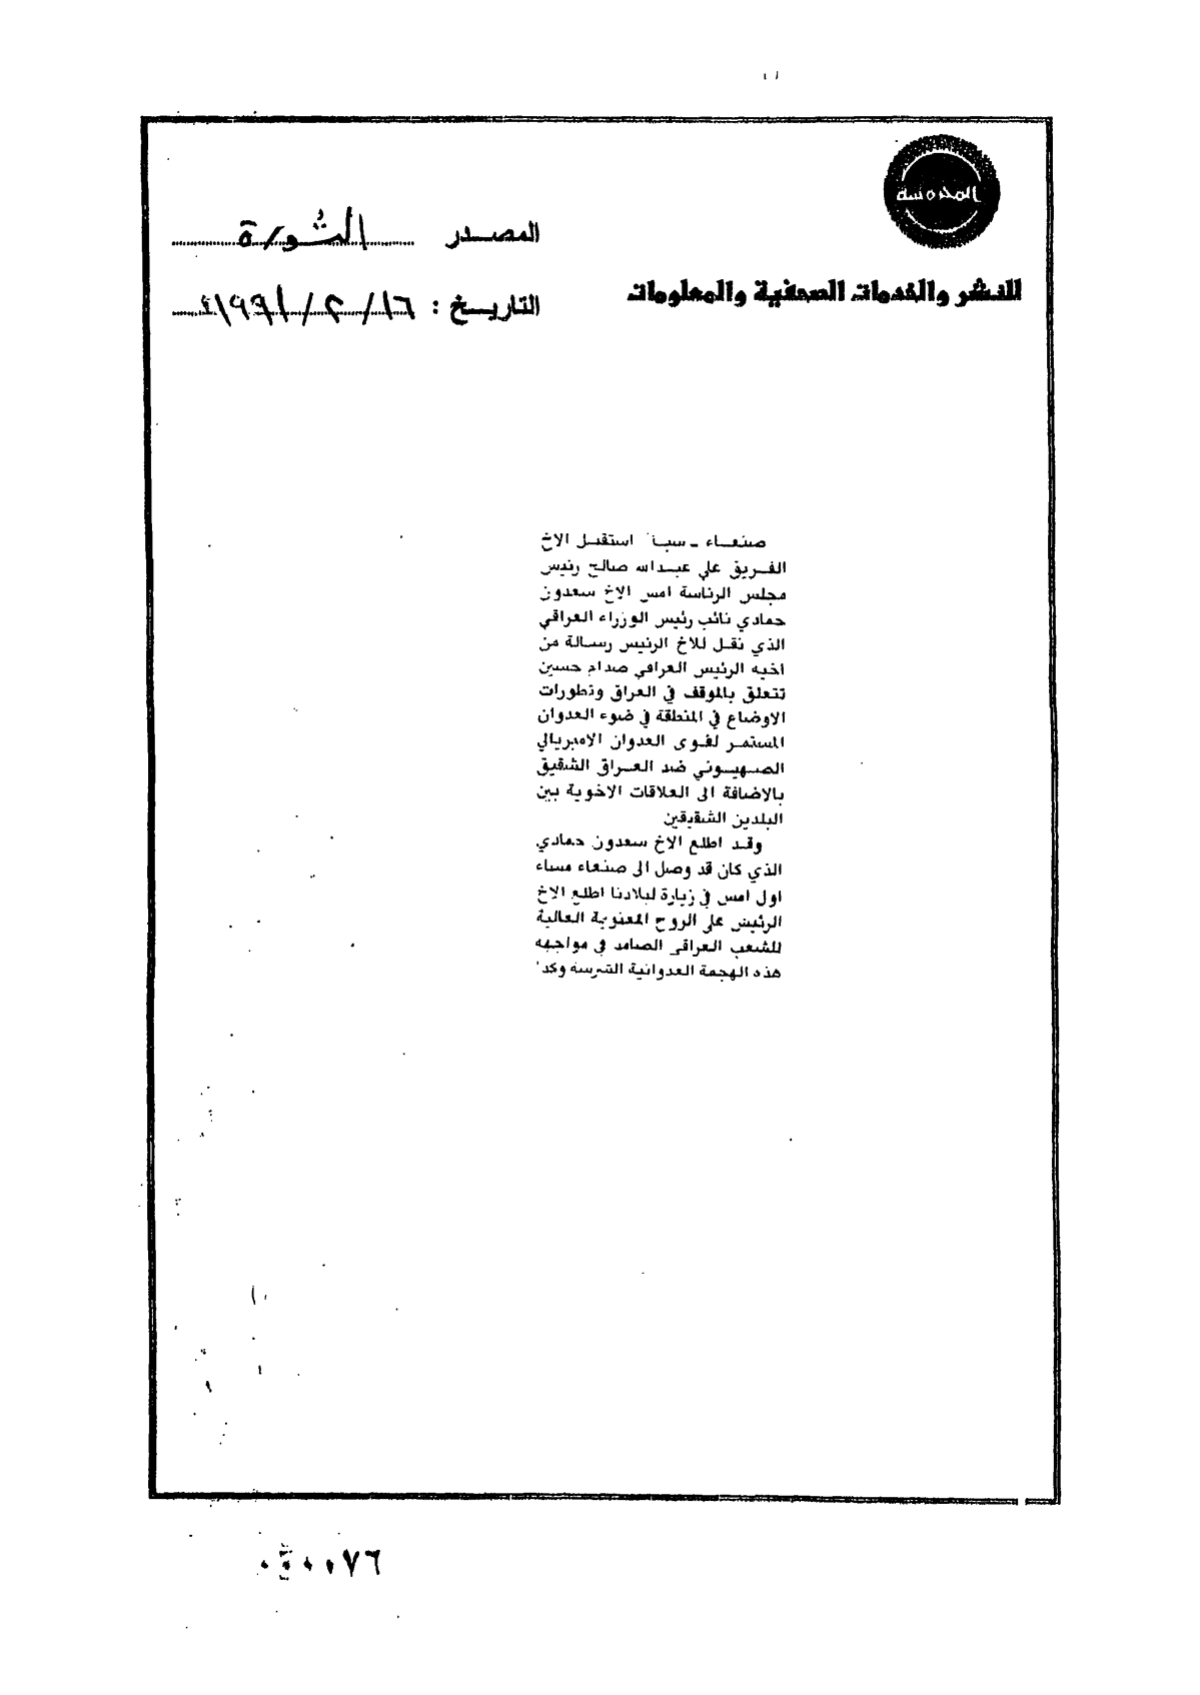 المحروسة
للنشر والخدمات الصحفية والمعلومات
المصدر الثورة
التاريخ : ١٦/٢/١٩٩١
صنعاء - سبأ استقبل الاخ
الفريق علي عبدالله صالح رئيس
مجلس الرئاسة امس الاخ سعدون
حمادي نائب رئيس الوزراء العراقي
الذي نقل للاخ الرئيس رسالة من
اخيه الرئيس العراقي صدام حسين
تتعلق بالموقف في العراق وتطورات
الاوضاع في المنطقة في ضوء العدوان
المستمر لقوى العدوان الامبريالي
الصهيوني ضد العراق الشقيق
بالاضافة الى العلاقات الاخوية بين
البلدين الشقيقين
وقد اطلع الاخ سعدون حمادي
الذي كان قد وصل الى صنعاء مساء
اول امس في زيارة لبلادنا اطلع الاخ
الرئيس على الروح المعنوية العالية
للشعب العراقي الصامد في مواجهة
هذه الهجمة العدوانية الشرسة وكد'